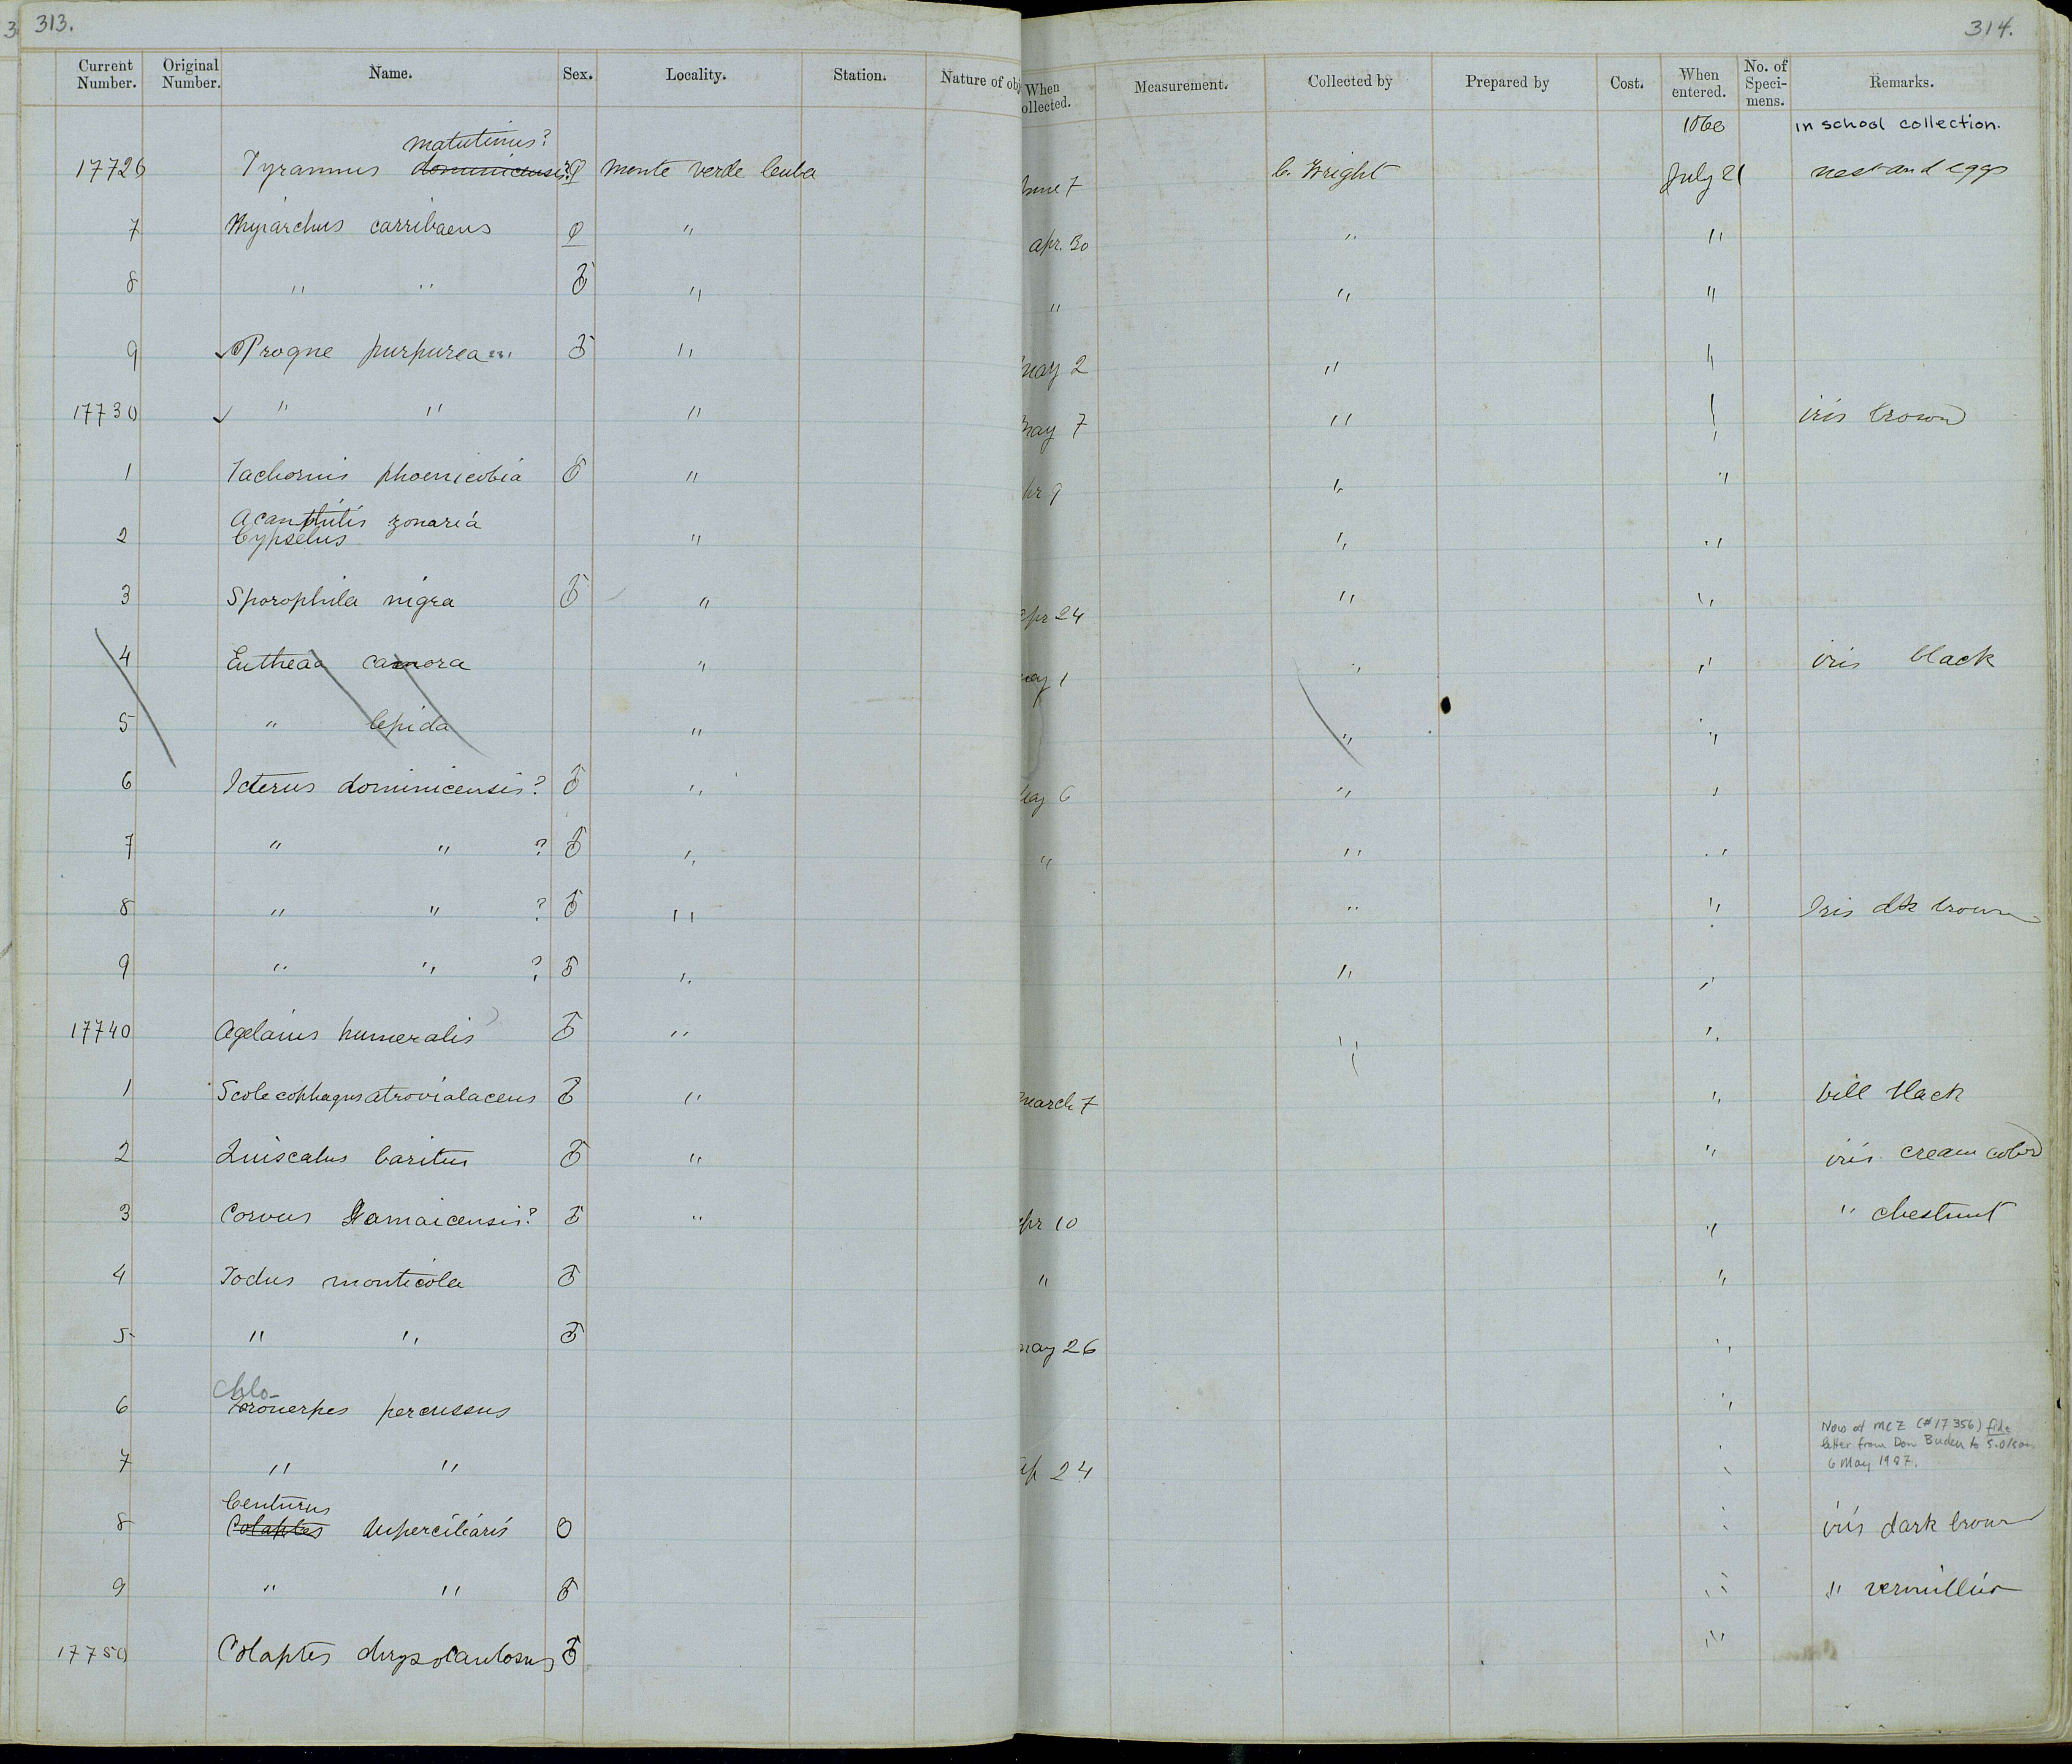 313.
314.
Current Number. Original Number. Name. Sex. Locality. Station. Nature of obj When ollected. Measurement. Collected by Prepared by Cost. When entered. No. of Speci-mens. Remarks.
1860 in school collection.
matutinus?
17726 Tyrannus dominicensis? ♀ Monte Verde Cuba June 7 C. Wright July 21 nest and eggs
7 Myiarchus carribaeus ♀ " apr. 30 " "
8 " " ♂ " " " "
9 ✓ Progne purpurea ♂ " may 2 " "
17730 ✓ " " " may 7 " " iris brown
1 Tachornis phoenicobia ♂ " pr 9 " "
Acanthilis zonaria
2 Cypselus " " "
3 Sporophila nigra ♂ " apr 24 " "
4 Eutheaa canora " may 1 " " iris black
5 " lepida " " "
6 Icterus dominicensis? ♂ " May 6 " "
7 " " ? ♂ " " " "
8 " " ? ♂ " " " Iris dk brown
9 " " ? ♂ " " "
17740 Agelaius humeralis ♂ " " "
1 Scolecophagus atroviolaceus ♂ " march 7 " bill black
2 Quiscalus baritus ♂ " " iris cream color
3 Corvus Jamaicensis? ♂ " apr 10 " " chestnut
4 Todus monticola ♂ " "
5 " " ♂ may 26 "
Chlo-
6 ronerpes percussus "
Now at MCZ (#17356) fide
letter from Don Buden to S. Olson
6 May 1987.
7 " " ap 24 "
Centurus
8 Colaptes superciliaris O " iris dark brown
9 " " ♂ " " vermillion
17750 Colaptes chrysocaulosus ♂ "